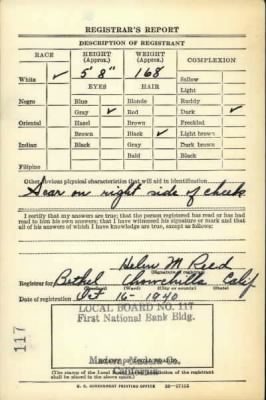 REGISTRAR'S REPORT
DESCRIPTION OF REGISTRANT
RACE HEIGHT (Approx.) WEIGHT (Approx.) COMPLEXION
White ✓ 5' 8" 168 Sallow
EYES HAIR Light
Negro Blue Blonde Ruddy
Gray ✓ Red Dark ✓
Oriental Hazel Brown Freckled
Brown Black ✓ Light brown
Indian Black Gray Dark brown
Bald Black
Filipino
Other obvious physical characteristics that will aid in identification
Scar on right side of cheek
I certify that my answers are true; that the person registered has read or has had
read to him his own answers; that I have witnessed his signature or mark and that
all of his answers of which I have knowledge are true, except as follows:
Helen M. Reed
(Signature of registrar)
Registrar for Bethel Chowchilla Calif
(Precinct) (Ward) (City or county) (State)
Date of registration Oct 16 - 1940
LOCAL BOARD NO. 117
First National Bank Bldg.
117
Madera, Madera Co.
California
(The stamp of the Local Board having jurisdiction of the registrant
shall be placed in the above space.)
U. S. GOVERNMENT PRINTING OFFICE 16—17105